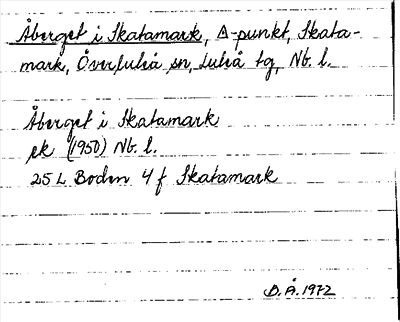 Åberget i Skatamark, Δ-punkt, Skata-
mark, Överluleå sn, Luleå tg, Nb. l.
Åberget i Skatamark
ek (1950) Nb. l.
25 L Boden 4 f Skatamark
D. Å. 1972